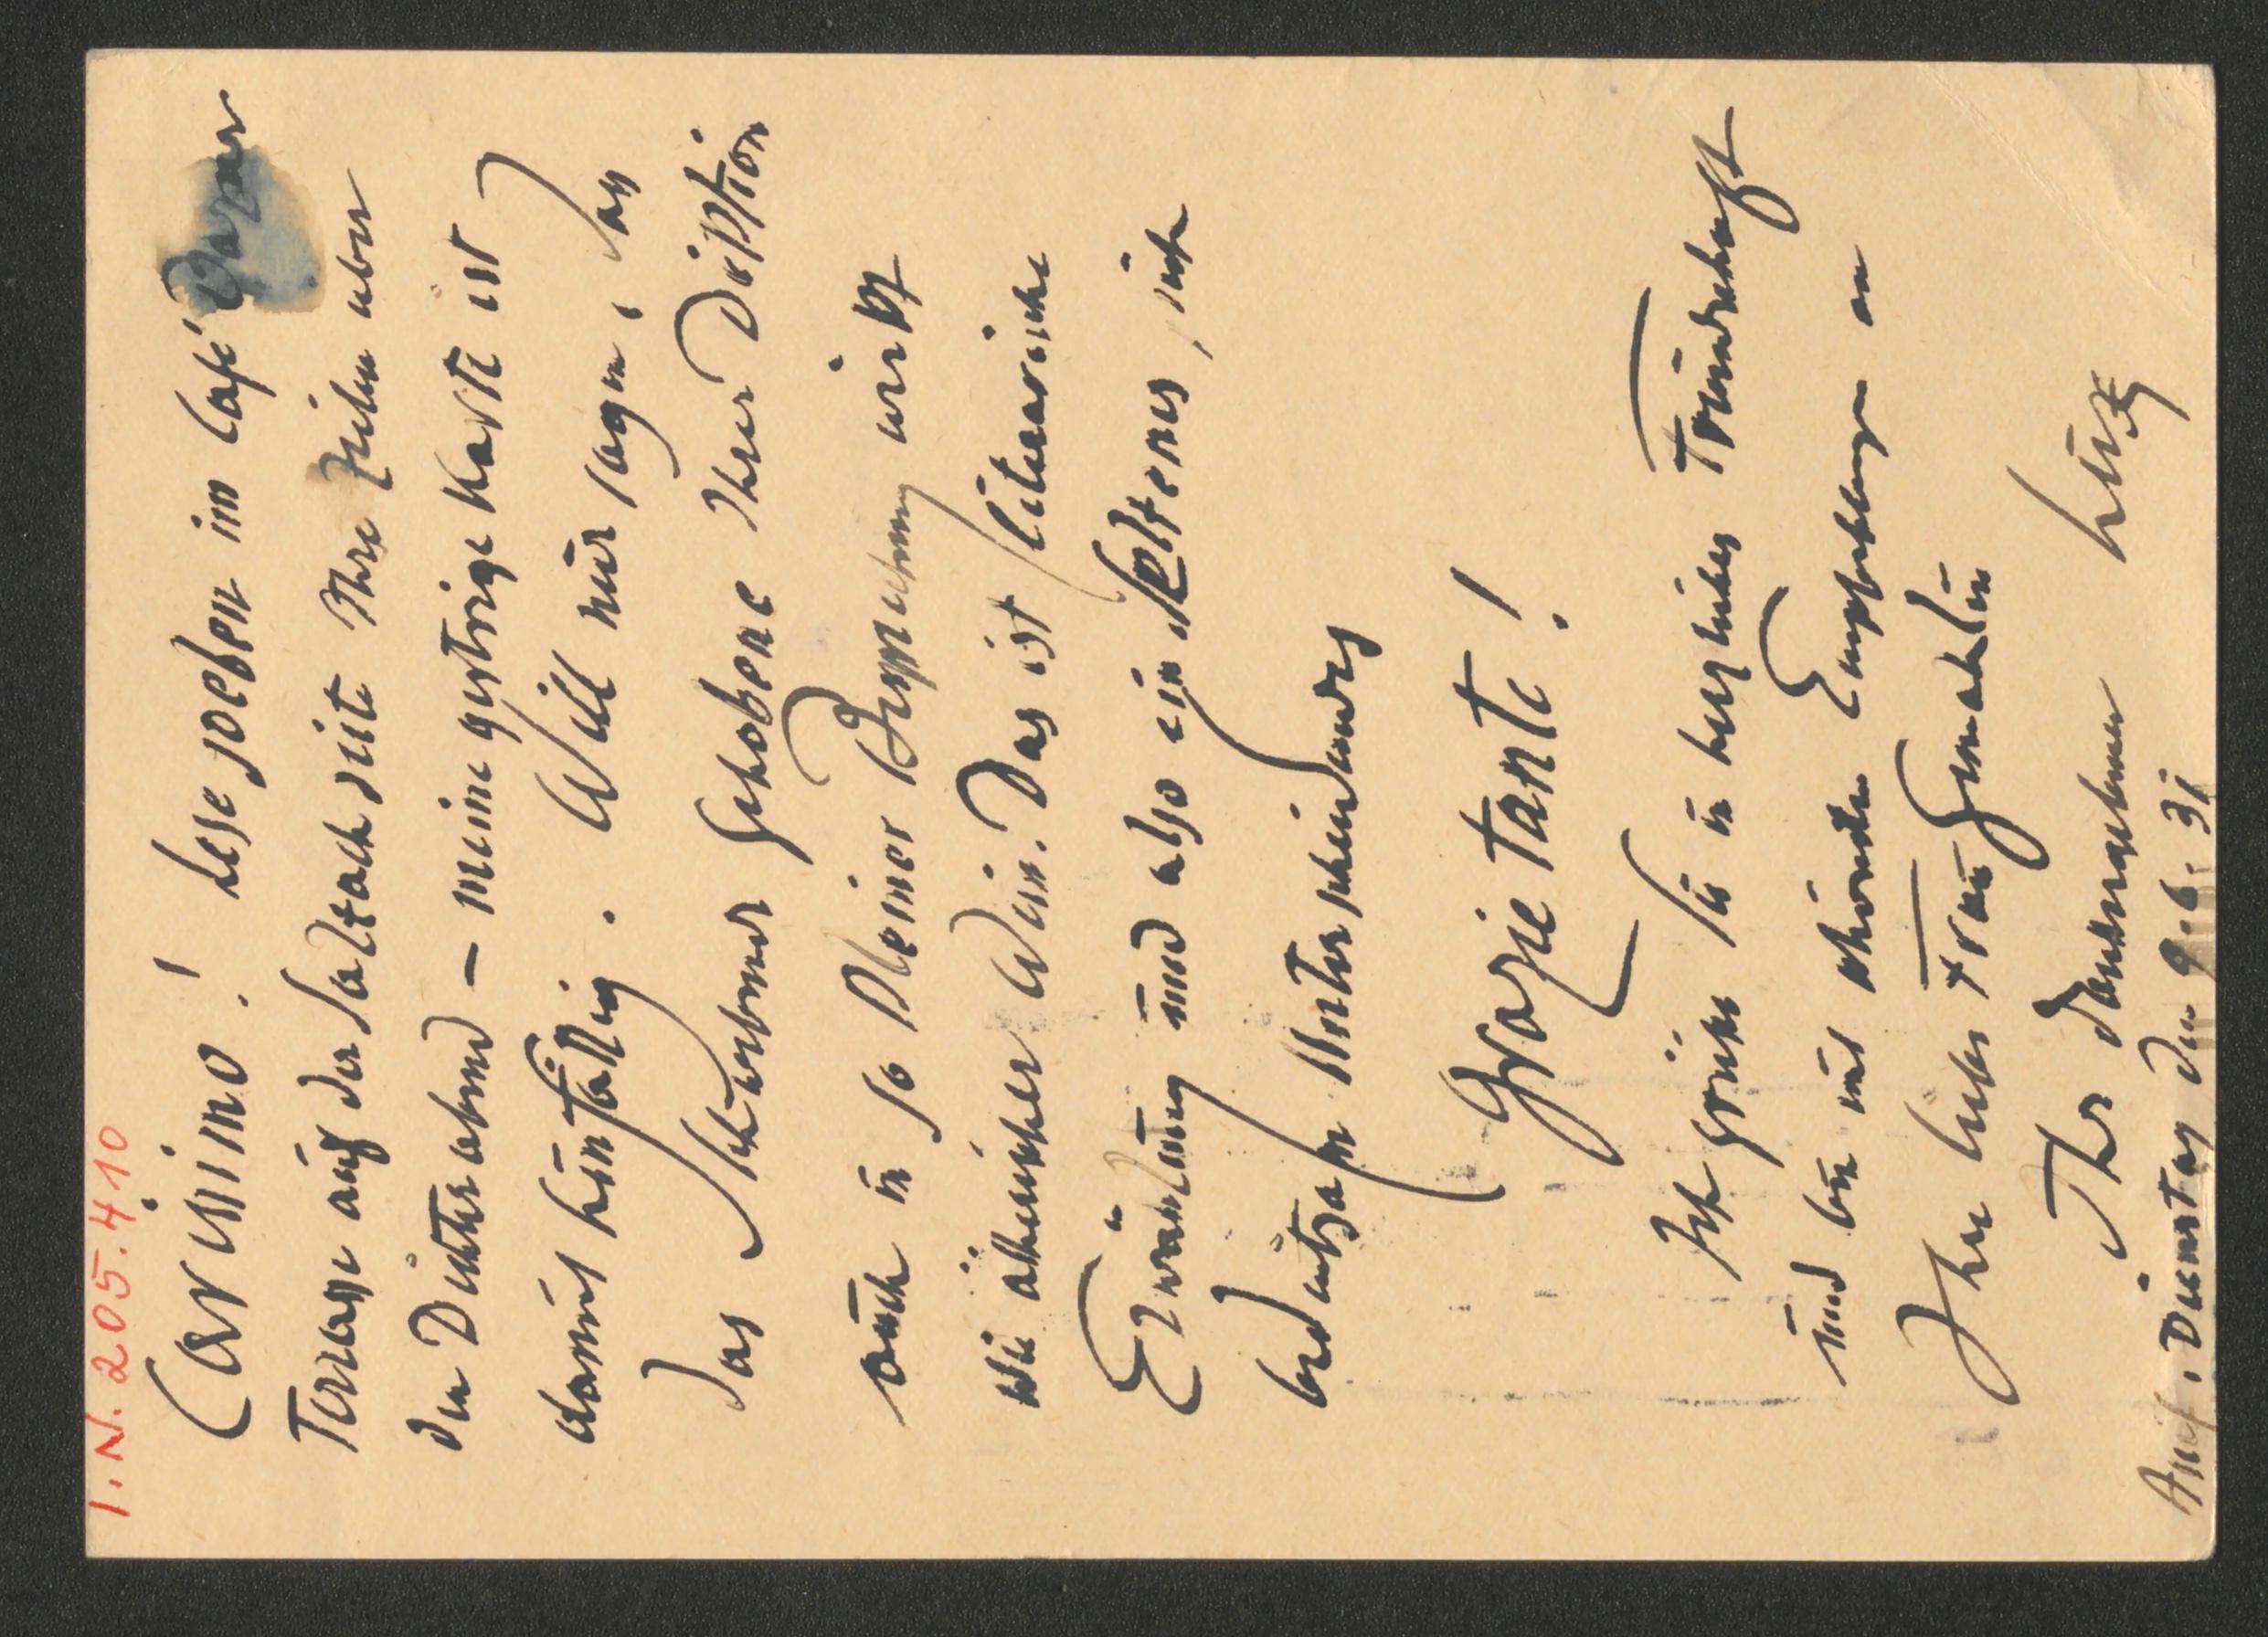 I.N. 205.410
Carissimo! Lese soeben im Café Bazar
Terrasse auf der Salzach seite Ihre Zeilen über
den Dichterabend – meine gestrige Karte ist
damit hinfällig. Will nur sagen, das
das Schwebend Gehobene Ihrer Diktion
auch in so kleiner Besprechung wirkt
wie ätherischer Wein. Das ist literarische
Erzählung und also ein Seltenes, sich
bedeutsam Unterscheidendes
Grazie tante!
Ich grüße Sie in herzlicher Freundschaft
und bin mit schönsten Empfehlungen an
Ihre liebe Frau Gemahlin
Ihr dankergebener
Anif, Dienstag den 9.6.31